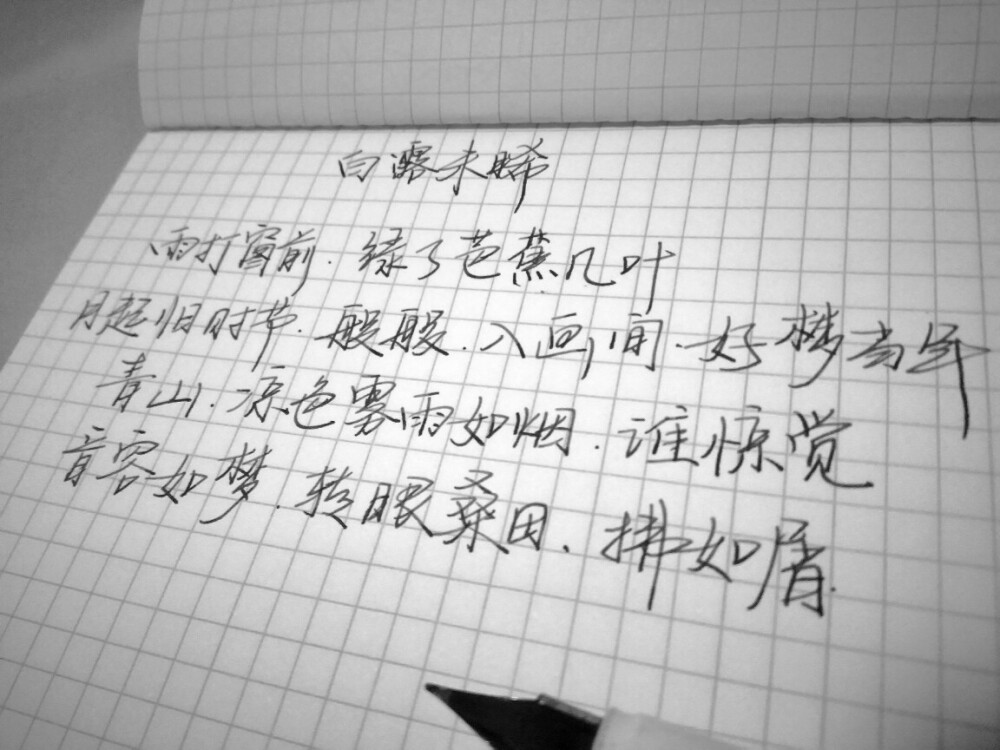 白露未晞
雨打窗前.绿了芭蕉几叶
月起归时节.般般.入画间.好梦当年
青山.凉色雾雨如烟.谁惊觉
音容如梦.转眼桑田.拂如眉.